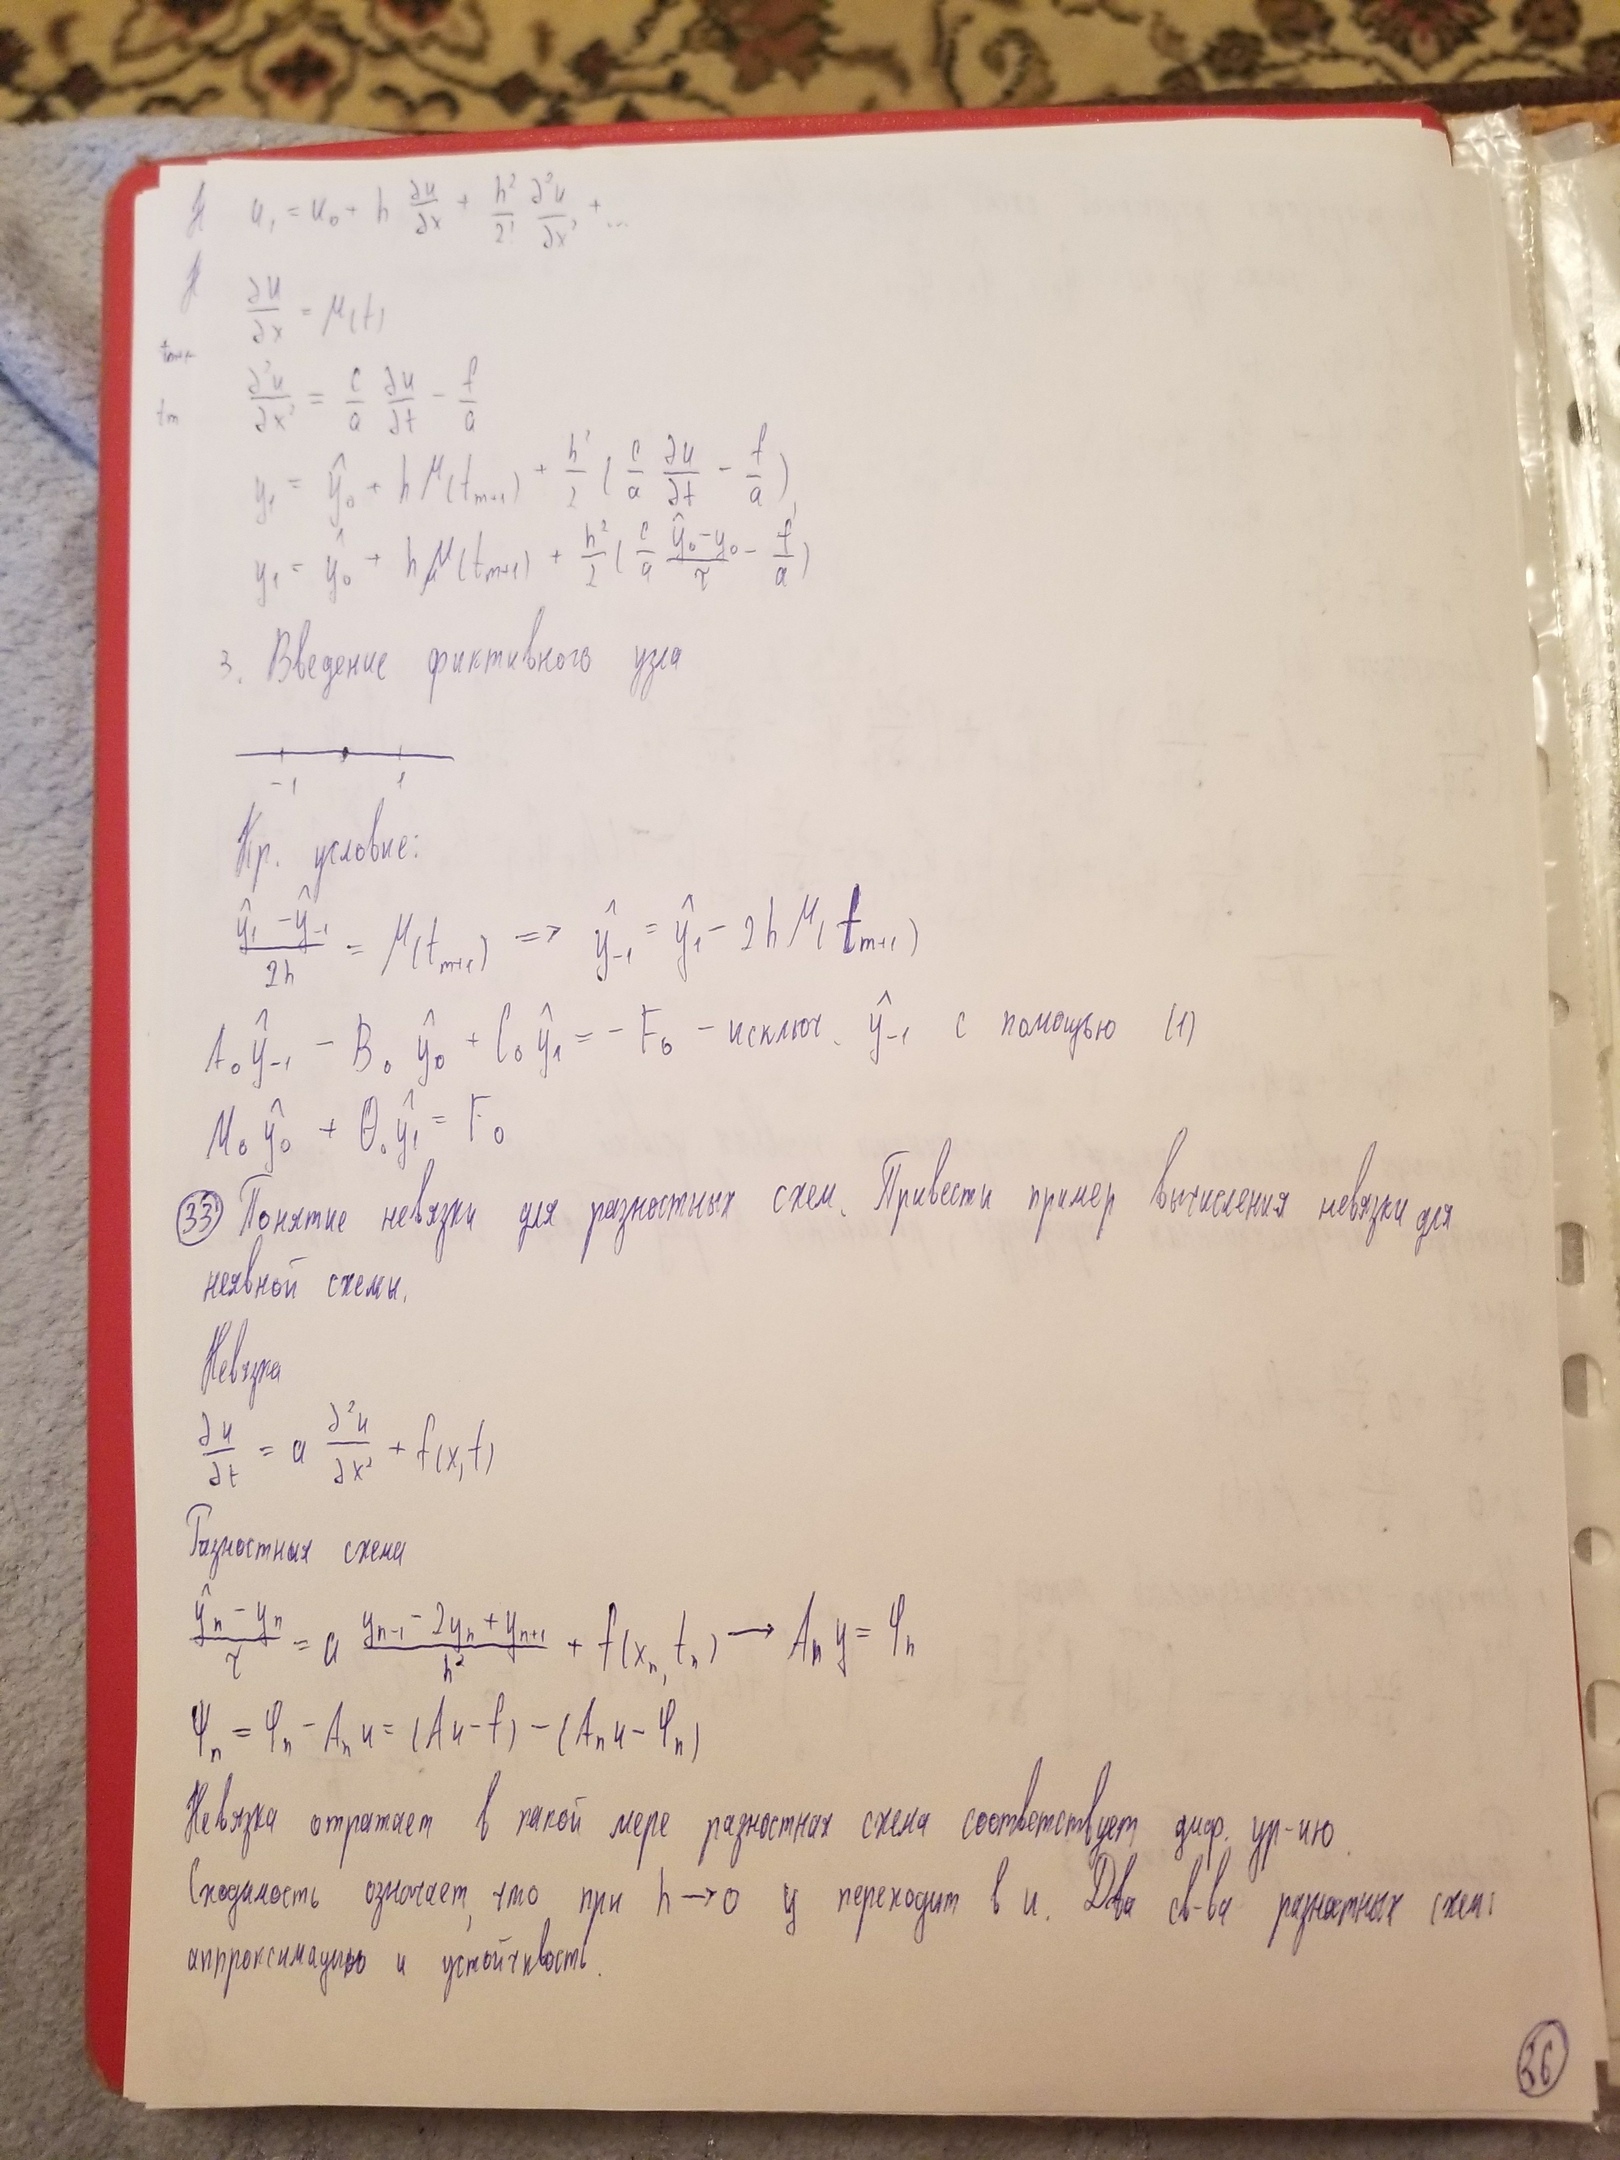 u₁ = u₀ + h ∂u/∂x + h²/2! ∂²u/∂x² + ...
∂u/∂x = μ(t)
tm+1
∂²u/∂x² = c/a ∂u/∂t - f/a
tm
y₁ = ŷ₀ + h μ(tm+1) + h²/2 (c/a ∂u/∂t - f/a)
y₁ = ŷ₀ + h μ(tm+1) + h²/2 (c/a (ŷ₀-y₀)/τ - f/a)
3. Введение фиктивного узла
-1 1
Кр. условие:
(ŷ₁ - ŷ₋₁)/2h = μ(tm+1) => ŷ₋₁ = ŷ₁ - 2h μ(tm+1)
A₀ŷ₋₁ - B₀ŷ₀ + C₀ŷ₁ = -F₀ - исключ. ŷ₋₁ с помощью (1)
M₀ŷ₀ + Θ₀ŷ₁ = F₀
33 Понятие невязки для разностных схем. Привести пример вычисления невязки для
неявной схемы.
Невязка
∂u/∂t = a ∂²u/∂x² + f(x,t)
Разностная схема
(ŷn - yn)/τ = a (yn-1 - 2yn + yn+1)/h² + f(xn, tn) → Ah y = φh
Ψh = φh - Ah u = (Au - f) - (Ah u - φh)
Невязка отражает в какой мере разностная схема соответствует диф. ур-ию.
Сходимость означает, что при h → 0 y переходит в u. Два св-ва разностных схем:
аппроксимацию и устойчивость.
36